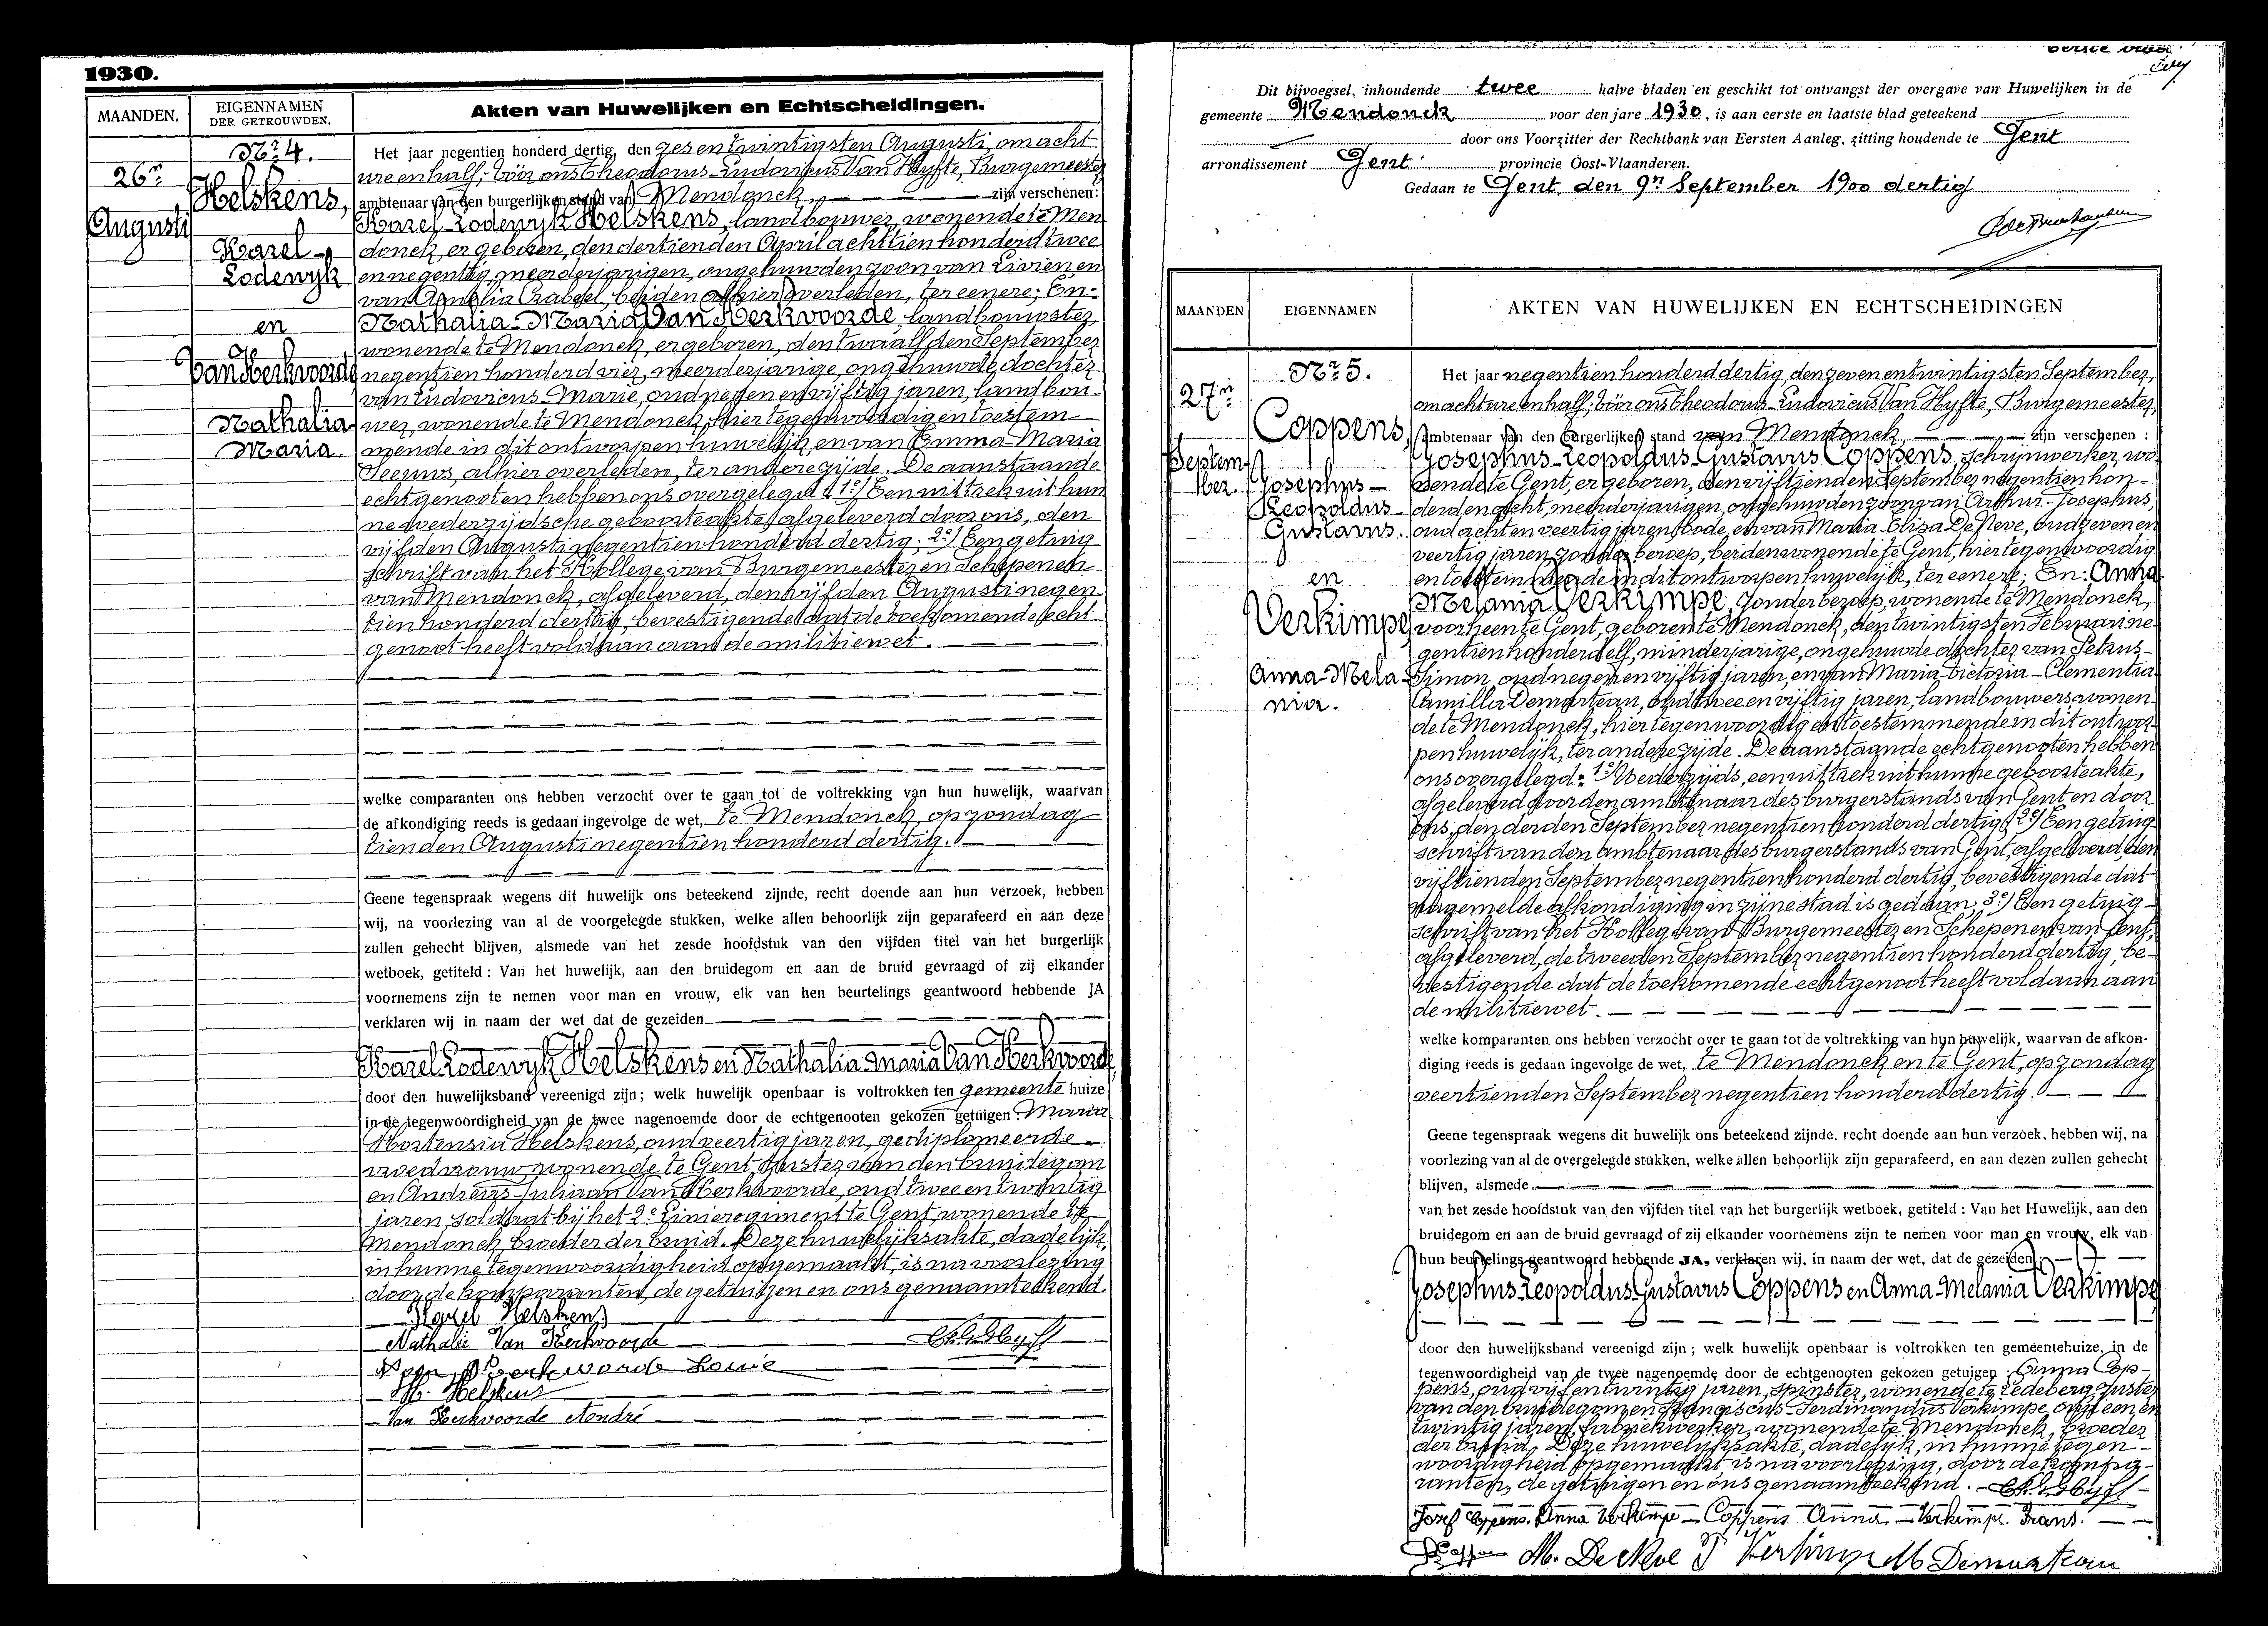 1930.
MAANDEN.
EIGENNAMEN
DER GETROUWDEN.
Akten van Huwelijken en Echtscheidingen.
Nr. 4.
26n
Augusti
Helskens,
Karel
Lodewijk
en
Van Kerkvoorde
Nathalia
Maria.
Het jaar negentien honderd dertig, den zes en twintigsten Augusti, om acht
ure en half, vóór ons Theodorus-Ludovicus Van Hyfte, Burgemeester
ambtenaar van den burgerlijken stand van Mendonck, zijn verschenen:
Karel Lodewijk Helskens, landbouwer, wonende te Men
donck, er geboren, den dertienden April achttien honderd twee
en negentig, meerderjarigen, ongehuwden zoon van Livien en
van Amelia Crabeel, beiden alhier overleden, ter eenere; En:
Nathalia-Maria Van Kerkvoorde, landbouwster,
wonende te Mendonck, er geboren, den twaalfden September
negentien honderd vier, meerderjarige, ongehuwde dochter
van Ludovicus-Marie, oud negen en vijftig jaren, landbou-
wer, wonende te Mendonck, hier tegenwoordig en toestem
mende in dit ontworpen huwelijk, en van Emma-Maria
Seeuws, alhier overleden, ter andere zijde. De aanstaande
echtgenooten hebben ons overgelegd: 1e) Een uittrek uit hun
ne wederzijdsche geboorteakte, afgeleverd door ons, den
vijfden Augusti negentien honderd dertig; 2e) Een getuig
schrift van het Kollege van Burgemeester en Schepenen
van Mendonck, afgeleverd, den vijfden Augusti negen
tien honderd dertig, bevestigende dat de toekomende echt
genoot heeft voldaan aan de militiewet.
welke comparanten ons hebben verzocht over te gaan tot de voltrekking van hun huwelijk, waarvan
de afkondiging reeds is gedaan ingevolge de wet, te Mendonck, op zondag
tienden Augusti negentien honderd dertig.
Geene tegenspraak wegens dit huwelijk ons beteekend zijnde, recht doende aan hun verzoek, hebben
wij, na voorlezing van al de voorgelegde stukken, welke allen behoorlijk zijn geparafeerd en aan deze
zullen gehecht blijven, alsmede van het zesde hoofdstuk van den vijfden titel van het burgerlijk
wetboek, getiteld: Van het huwelijk, aan den bruidegom en aan de bruid gevraagd of zij elkander
voornemens zijn te nemen voor man en vrouw, elk van hen beurtelings geantwoord hebbende JA
verklaren wij in naam der wet dat de gezeiden
Karel Lodewijk Helskens en Nathalia-Maria Van Kerkvoorde
door den huwelijksband vereenigd zijn; welk huwelijk openbaar is voltrokken ten gemeente huize
in de tegenwoordigheid van de twee nagenoemde door de echtgenooten gekozen getuigen: Maria
Hortensia Helskens, oud veertig jaren, gediplomeerde
vroedvrouw, wonende te Gent, zuster van den bruidegom
en Andreus-Juliaan Van Kerkvoorde, oud twee en twintig
jaren, soldaat bij het 2e Linieregiment te Gent, wonende te
Mendonck, broeder der bruid. Deze huwelijksakte, dadelijk,
in hunne tegenwoordigheid opgemaakt, is na voorlezing
door de komparanten, de getuigen en ons genaamteekend.
Karel Helskens
Nathalie Van Kerkvoorde
Van Kerkvoorde Louie
M. Helskens
Van Kerkvoorde André
Dit bijvoegsel, inhoudende twee halve bladen en geschikt tot ontvangst der overgave van Huwelijken in de
gemeente Mendonck voor den jare 1930, is aan eerste en laatste blad geteekend
door ons Voorzitter der Rechtbank van Eersten Aanleg, zitting houdende te Gent
arrondissement Gent provincie Oost-Vlaanderen.
Gedaan te Gent, den 9n September 1900 dertig
MAANDEN
EIGENNAMEN
AKTEN VAN HUWELIJKEN EN ECHTSCHEIDINGEN
Nr. 5.
27n
Septem
ber.
Coppens,
Josephus-
Leopoldus-
Gustavus.
en
Verkimpe
Anna-Mela-
nia.
Het jaar negentien honderd dertig, den zeven en twintigsten September,
om acht ure en half, vóór ons Theodorus-Ludovicus Van Hyfte, Burgemeester,
ambtenaar van den burgerlijken stand van Mendonck, zijn verschenen:
Josephus-Leopoldus-Gustavus Coppens, schrijnwerker, wo-
nende te Gent, er geboren, den vijftienden September negentien hon-
derd en acht, meerderjarigen, ongehuwden zoon van Arthur-Josephus,
oud acht en veertig jaren, bode, en van Maria-Elisa De Neve, oud zeven en
veertig jaren, zonder beroep, beiden wonende te Gent, hier tegenwoordig
en toestemmende in dit ontworpen huwelijk, ter eenere; En: Anna
Melania Verkimpe, zonder beroep, wonende te Mendonck,
voorheen te Gent, geboren te Mendonck, den twintigsten Februari ne
gentien honderd elf, minderjarige, ongehuwde dochter van Petrus-
Simon, oud negen en vijftig jaren, en van Maria-Victoria-Clementia
Camilla Demarteau, oud twee en vijftig jaren, landbouwers, wonen-
de te Mendonck, hier tegenwoordig en toestemmende in dit ontwor-
pen huwelijk, ter andere zijde. De aanstaande echtgenooten hebben
ons overgelegd: 1e) Wederzijds, een uittrek uit hunne geboorteakte,
afgeleverd door den ambtenaar des burgerstands van Gent en door
ons, den derden September negentien honderd dertig; 2e) Een getuig-
schrift van den ambtenaar des burgerstands van Gent, afgeleverd, den
vijftienden September negentien honderd dertig, bevestigende dat
nagemelde afkondiging in zijne stad is gedaan; 3e) Een getuig-
schrift van het Kollege van Burgemeester en Schepenen van Gent,
afgeleverd, de tweeden September negentien honderd dertig, be-
vestigende dat de toekomende echtgenoot heeft voldaan aan
de militiewet.
welke komparanten ons hebben verzocht over te gaan tot de voltrekking van hun huwelijk, waarvan de afkon-
diging reeds is gedaan ingevolge de wet, te Mendonck en te Gent, op zondag
veertienden September negentien honderd dertig.
Geene tegenspraak wegens dit huwelijk ons beteekend zijnde, recht doende aan hun verzoek, hebben wij, na
voorlezing van al de overgelegde stukken, welke allen behoorlijk zijn geparafeerd, en aan dezen zullen gehecht
blijven, alsmede
van het zesde hoofdstuk van den vijfden titel van het burgerlijk wetboek, getiteld: Van het Huwelijk, aan den
bruidegom en aan de bruid gevraagd of zij elkander voornemens zijn te nemen voor man en vrouw, elk van
hun beurtelings geantwoord hebbende JA, verklaren wij, in naam der wet, dat de gezeiden:
Josephus-Leopoldus-Gustavus Coppens en Anna-Melania Verkimpe
door den huwelijksband vereenigd zijn; welk huwelijk openbaar is voltrokken ten gemeentehuize, in de
tegenwoordigheid van de twee nagenoemde door de echtgenooten gekozen getuigen: Anna Cop-
pens, oud vijf en twintig jaren, spinster, wonende te Ledeberg, zuster
van den bruidegom, en Franciscus Ferdinandus Verkimpe, oud een en
twintig jaren, fabriekwerker, wonende te Mendonck, broeder
der bruid. Deze huwelijksakte, dadelijk, in hunne tegen-
woordigheid opgemaakt is na voorlezing, door de kompa-
ranten, de getuigen en ons genaamteekend.
Jozef Coppens. Anna Verkimpe - Coppens Anna. - Verkimpe Frans.
M. De Neve P Verkimpe M Demarteau